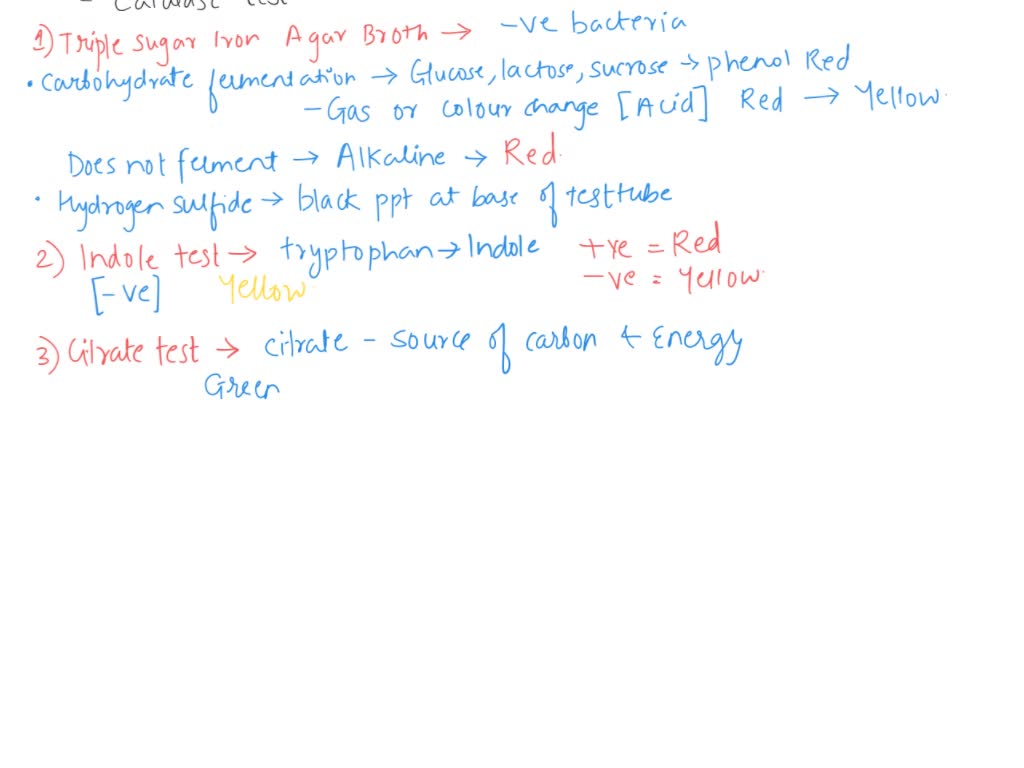 1) Triple Sugar Iron Agar Broth → -ve bacteria
• Carbohydrate fermentation → Glucose, lactose, sucrose → phenol Red
- Gas or colour change [Acid] Red → Yellow.
Does not ferment → Alkaline → Red.
• Hydrogen sulfide → black ppt at base of testtube
2) Indole test → tryptophan → Indole +ve = Red
[-ve] Yellow -ve = Yellow.
3) Citrate test → citrate - source of carbon + Energy
Green